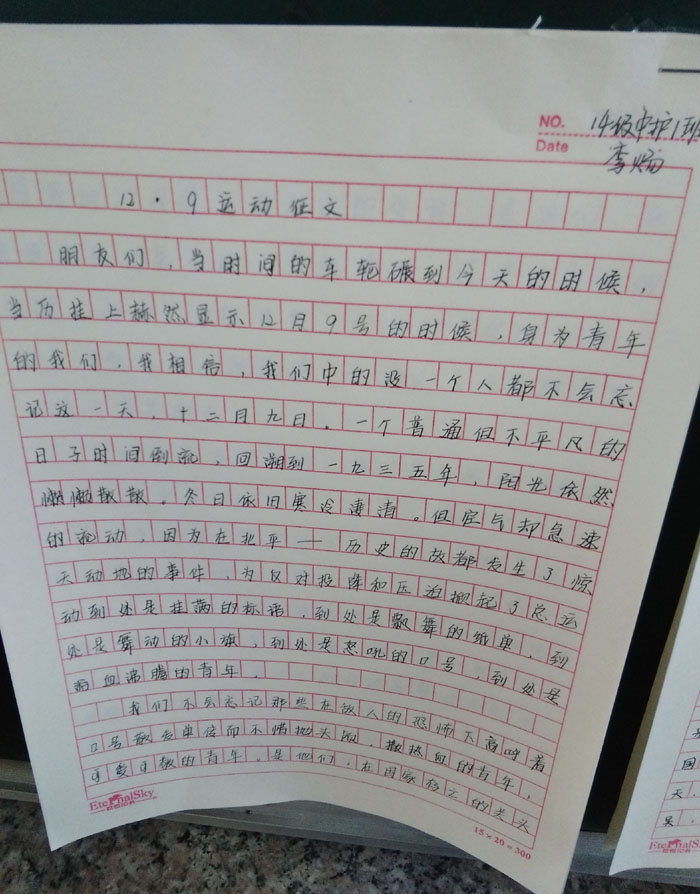 NO. 14级中护1班
Date 李炀
12·9运动征文
朋友们，当时间的车轮碾到今天的时候，
当历挂上赫然显示12月9号的时候，身为青年
的我们，我相信，我们中的没一个人都不会忘
记这一天，十二月九日。一个普通但不平凡的
日子时间倒流，回溯到一九三五年，阳光依然
懒懒散散。冬日依旧寒冷凄清。但空气却急速
的流动，因为在北平——历史的故都发生了惊
天动地的事件，为反对投降和压迫掀起了总运
动到处是挂满的标语，到处是飘舞的纸单，到
处是舞动的小旗，到处是怒吼的口号，到处是
热血沸腾的青年。
我们不会忘记那些在敌人的恐怖下高呼着
口号散发单而不惜抛头颅，撒热血的青年，
可爱可敬的青年。是他们，在国家存亡的关头
EternalSky
15×20=300
国
天，
吴，
EternalSky